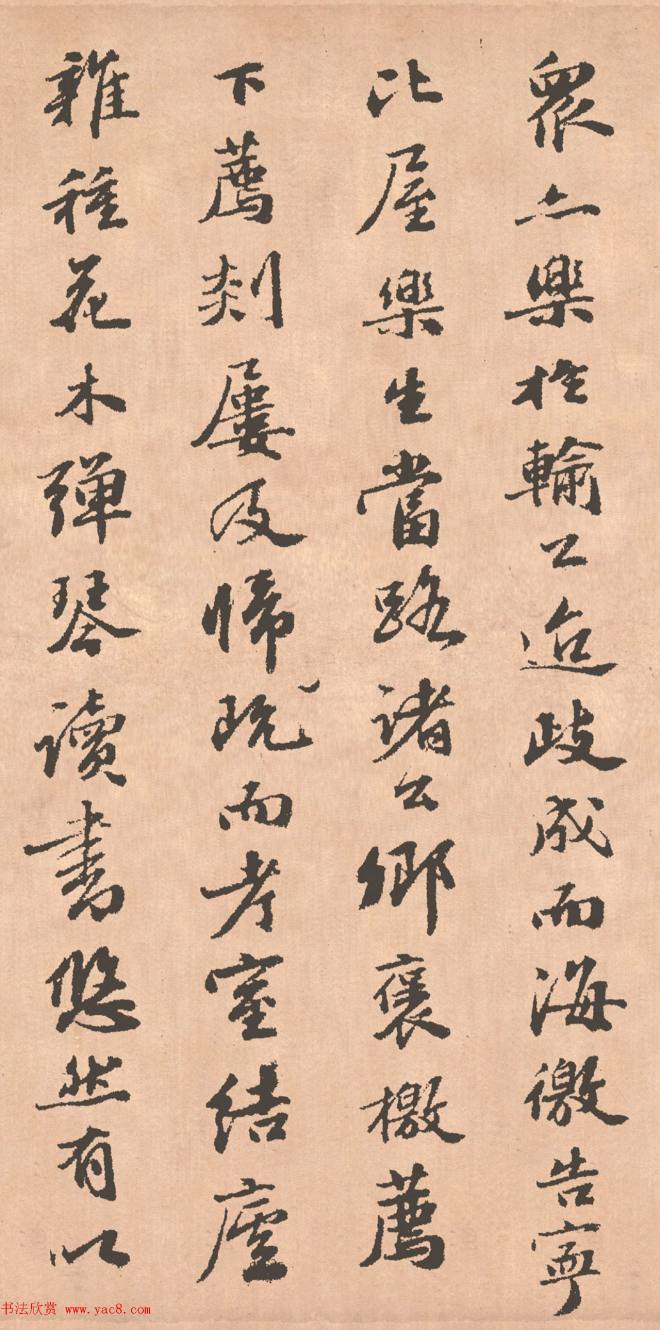 眾亦樂於輸工迨歧成而海徼告寧
比屋樂生當路諸公卿褒檄薦
下薦剡屢及悕既而考室結廬
雜種花木彈琴讀書悠然有以
书法欣赏 www.yac8.com